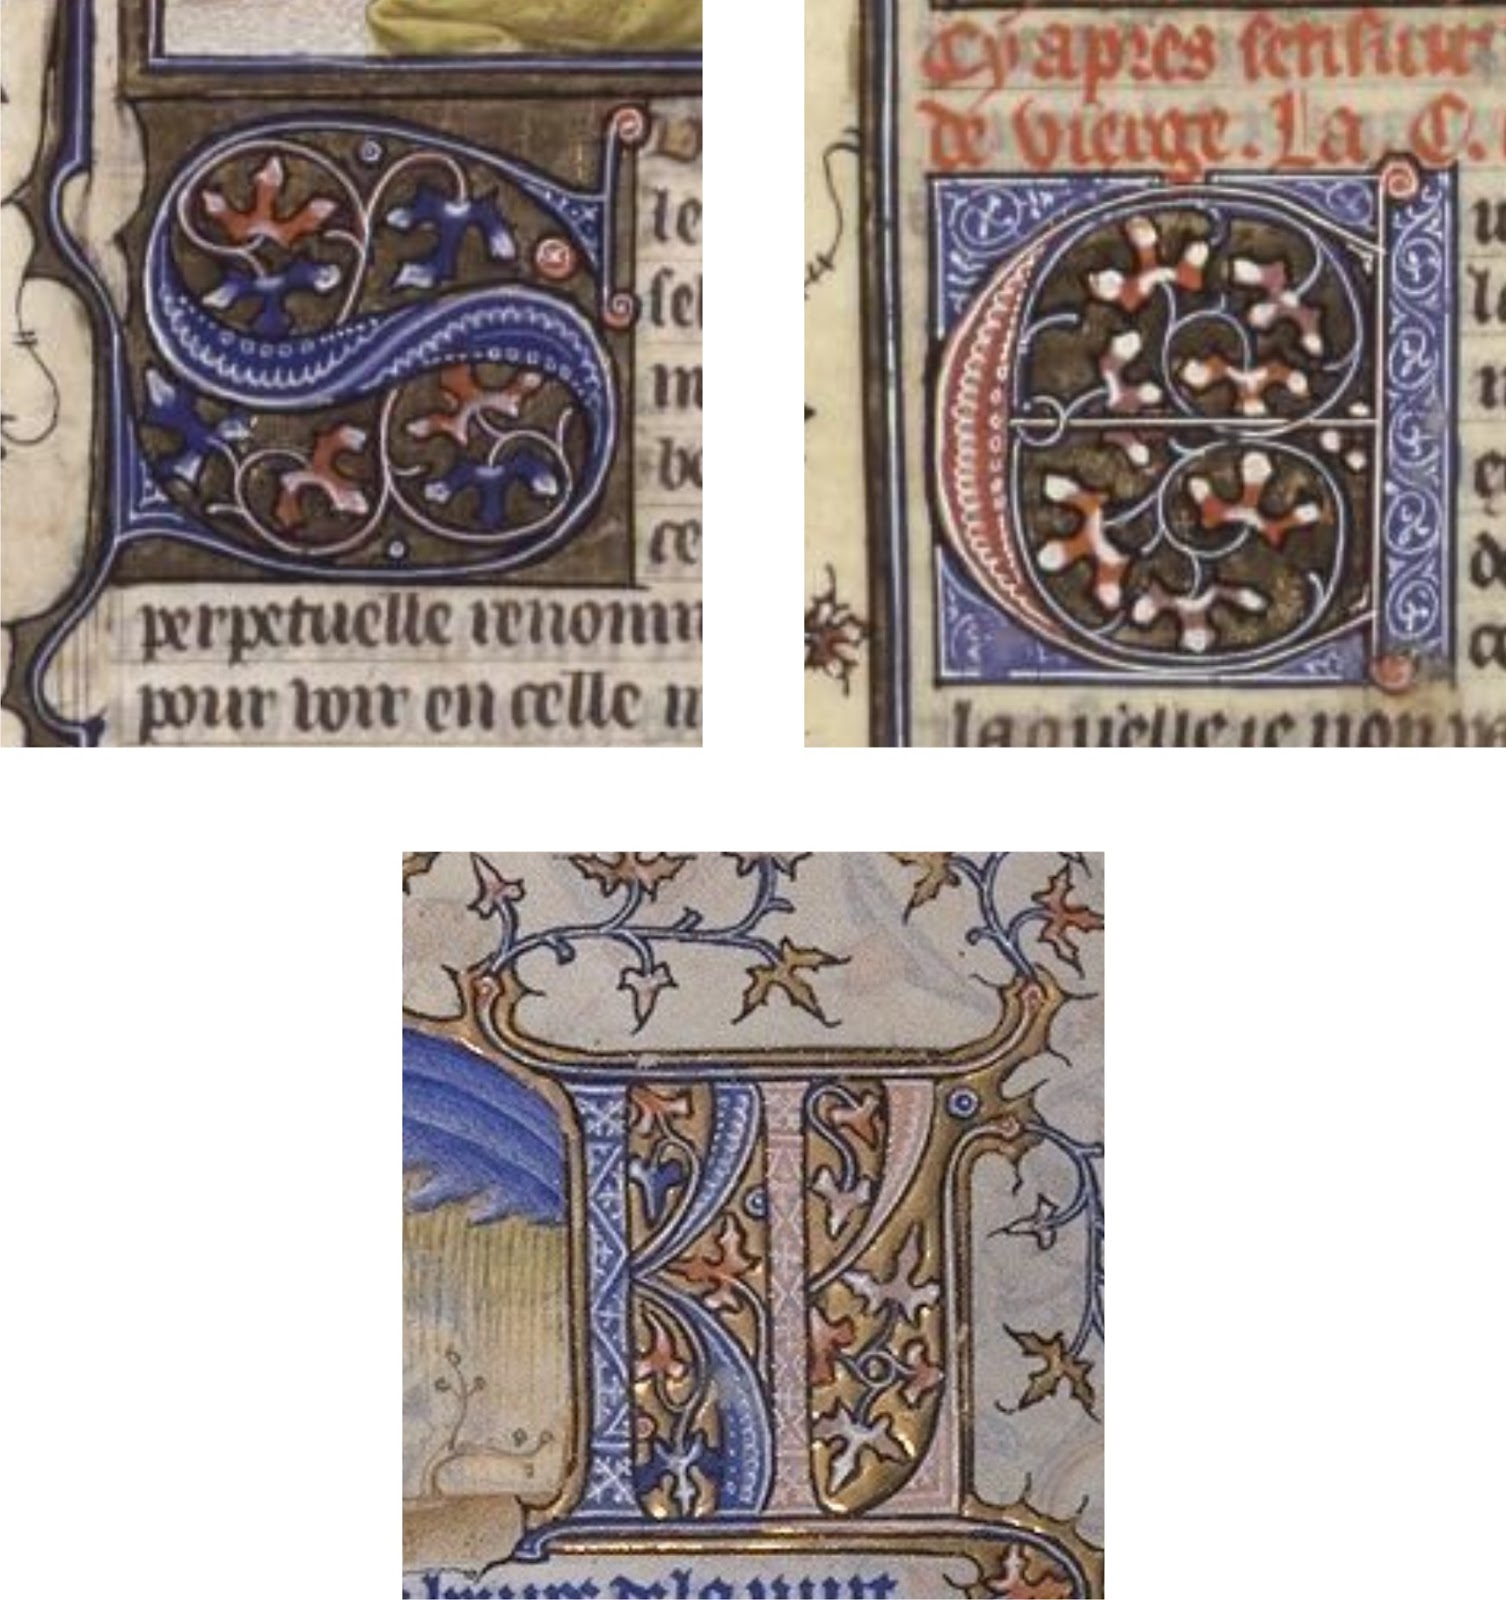 S
le
sel
m
bo
ce
perpetuelle renomm
pour voir en celle m
Cy apres sensuit
de vierge. La. C.
E
n
la
n
e
d
a
laquelle ie non
KL
heure de la nuit